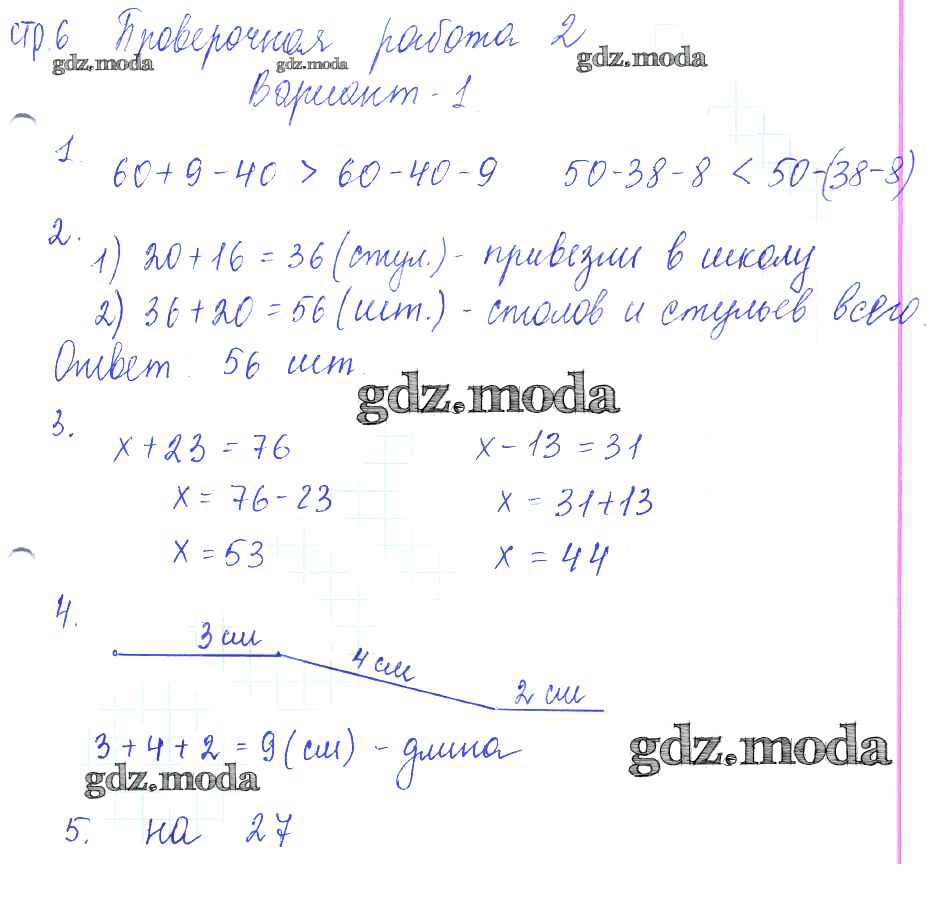 стр. 6 Проверочная работа 2
gdz.moda gdz.moda gdz.moda
Вариант - 1
1.
60 + 9 - 40 > 60 - 40 - 9 50 - 38 - 8 < 50 - (38 - 8)
2.
1) 20 + 16 = 36 (стул.) - привезли в школу
2) 36 + 20 = 56 (шт.) - столов и стульев всего.
Ответ: 56 шт.
gdz.moda
3.
x + 23 = 76 x - 13 = 31
x = 76 - 23 x = 31 + 13
x = 53 x = 44
4.
3 см
4 см
2 см
3 + 4 + 2 = 9 (см) - длина
gdz.moda gdz.moda
5. на 27